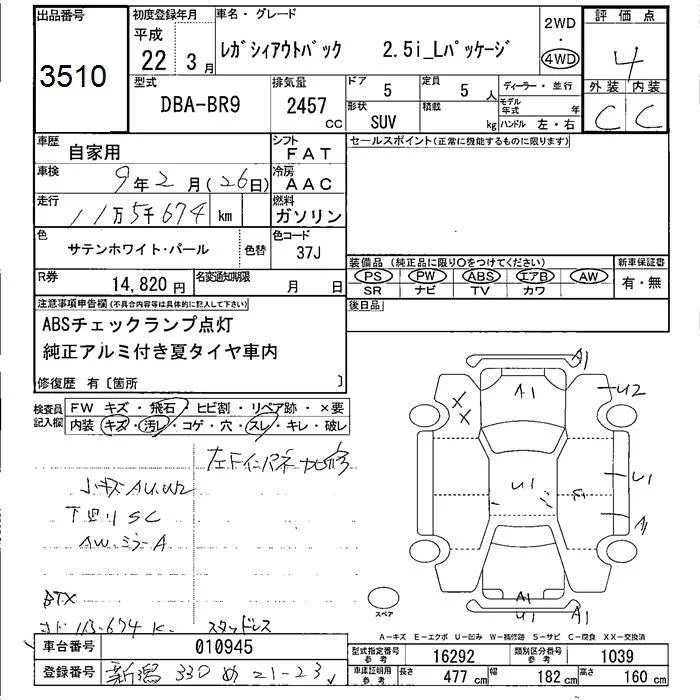 出品番号
3510
初度登録年月
平成
22 3月
車名・グレード
レガシィアウトバック 2.5i_Lパッケージ
2WD
・
4WD
評価点
4
外装 内装
C C
型式
DBA-BR9
排気量
2457
CC
ドア
5
定員
5 人
形状
SUV
積載
kg
ディーラー・並行
モデル年式 年
ハンドル 左・右
車歴
自家用
シフト
FAT
車検
9年2月(26日)
冷房
AAC
走行
11万5千674 km
燃料
ガソリン
色
サテンホワイト・パール
色替
色コード
37J
R券
14,820円
名変通知期限
月 日
セールスポイント(正常に機能するものに限ります)
装備品(純正品に限り○をつけてください)
PS PW ABS エアB AW
SR ナビ TV カワ
新車保証書
有・無
後日品
注意事項申告欄(不具合内容等は具体的に記入して下さい)
ABSチェックランプ点灯
純正アルミ付き夏タイヤ車内
修復歴 有〔箇所 〕
検査員記入欄
FW キズ・飛石・ヒビ割・リペア跡・×要
内装 キズ・汚レ・コゲ・穴・スレ・キレ・破レ
小キズAU.U2
下廻りSC
AW.ミラーA
BTX
スタッドレス
A1
A1
U2
X
X
U1
U1
A1
A1
U1
A1
スペア
A-キズ E-エクボ U-凹み W-補修跡 S-サビ C-腐食 XX-交換済
車台番号
010945
登録番号
新潟 330 め 21-23
型式指定番号
参考
16292
類別区分番号
参考
1039
車庫証明用
参考
長さ
477 cm
幅
182 cm
高さ
160 cm